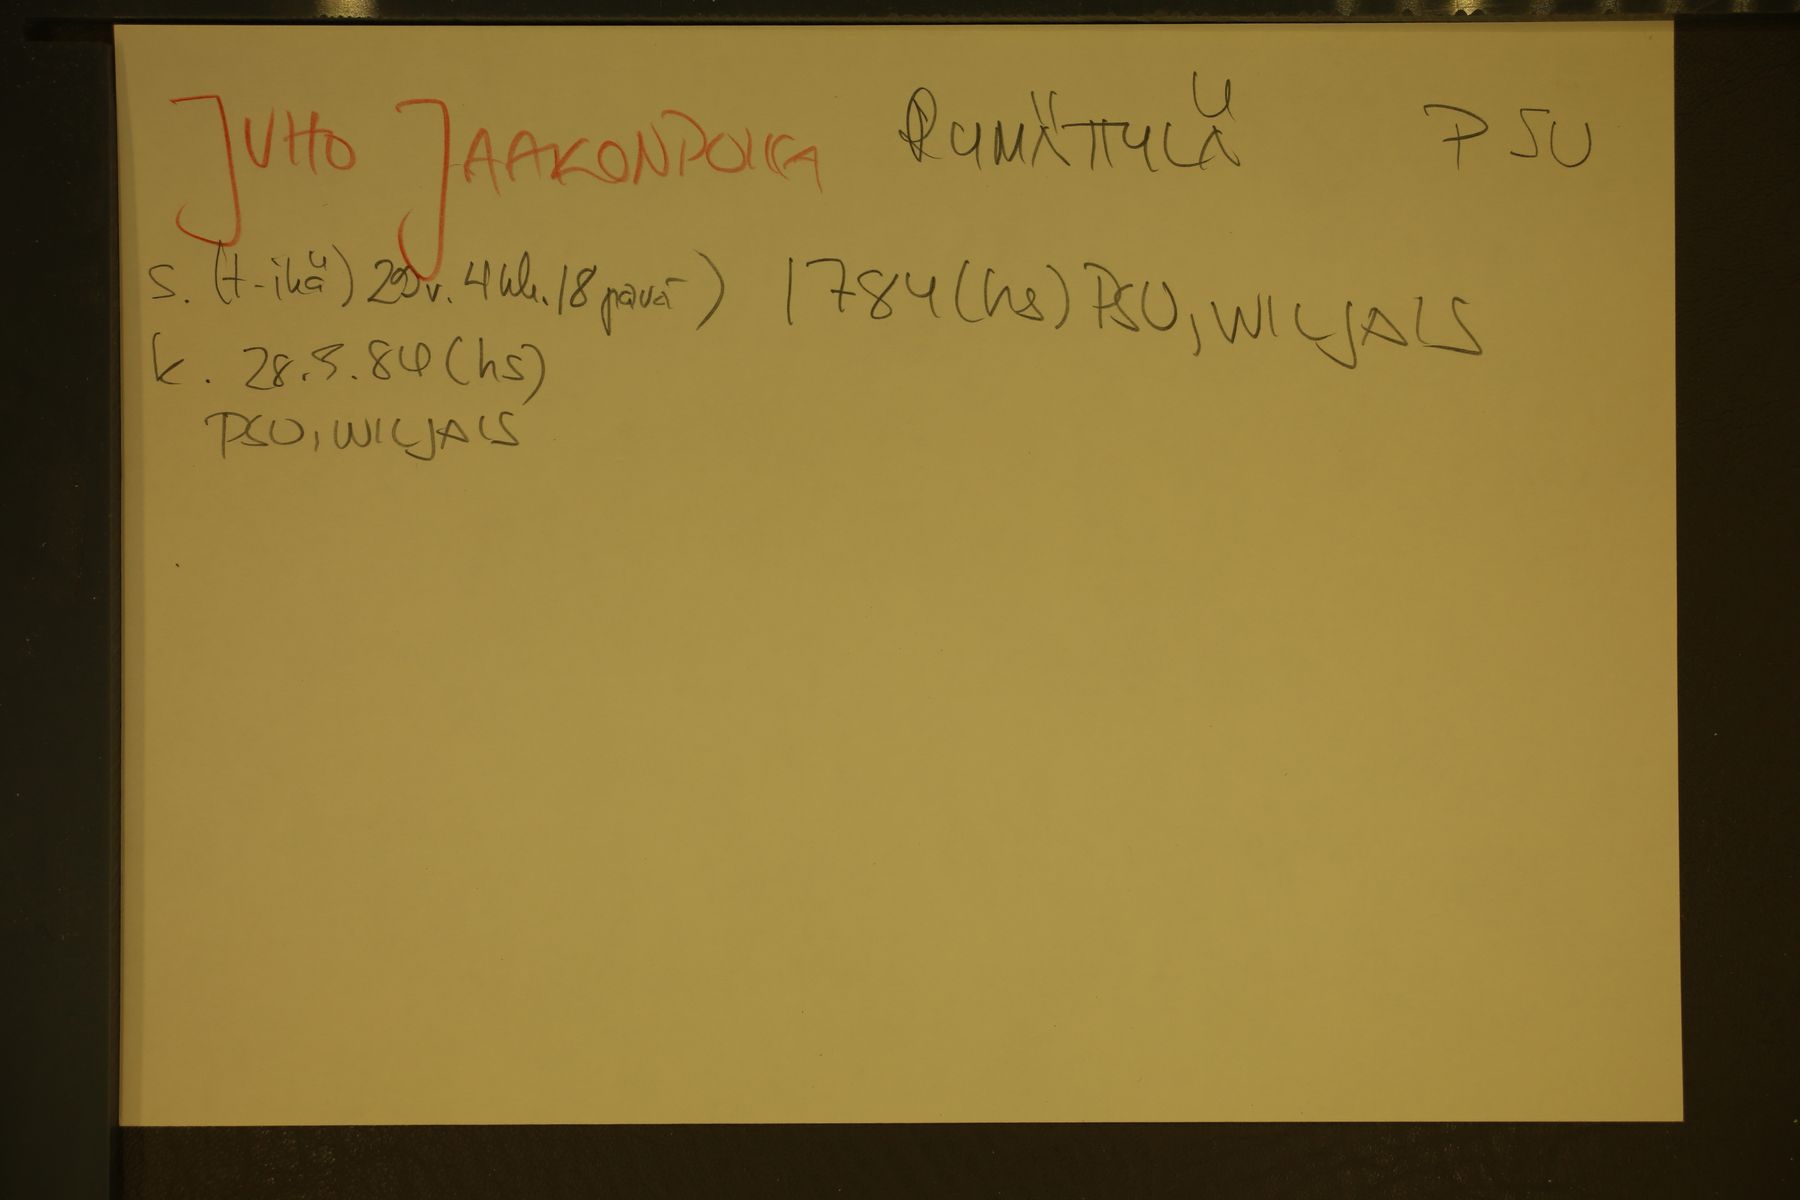 JUHO JAAKONPOIKA RYMÄTTYLÄ PSU
s. (t-ikä) 29 v. 4 kk. 18 pävä) 1784 (hs) PSU, WILJALS
k. 28.5.84 (hs)
PSU, WILJALS